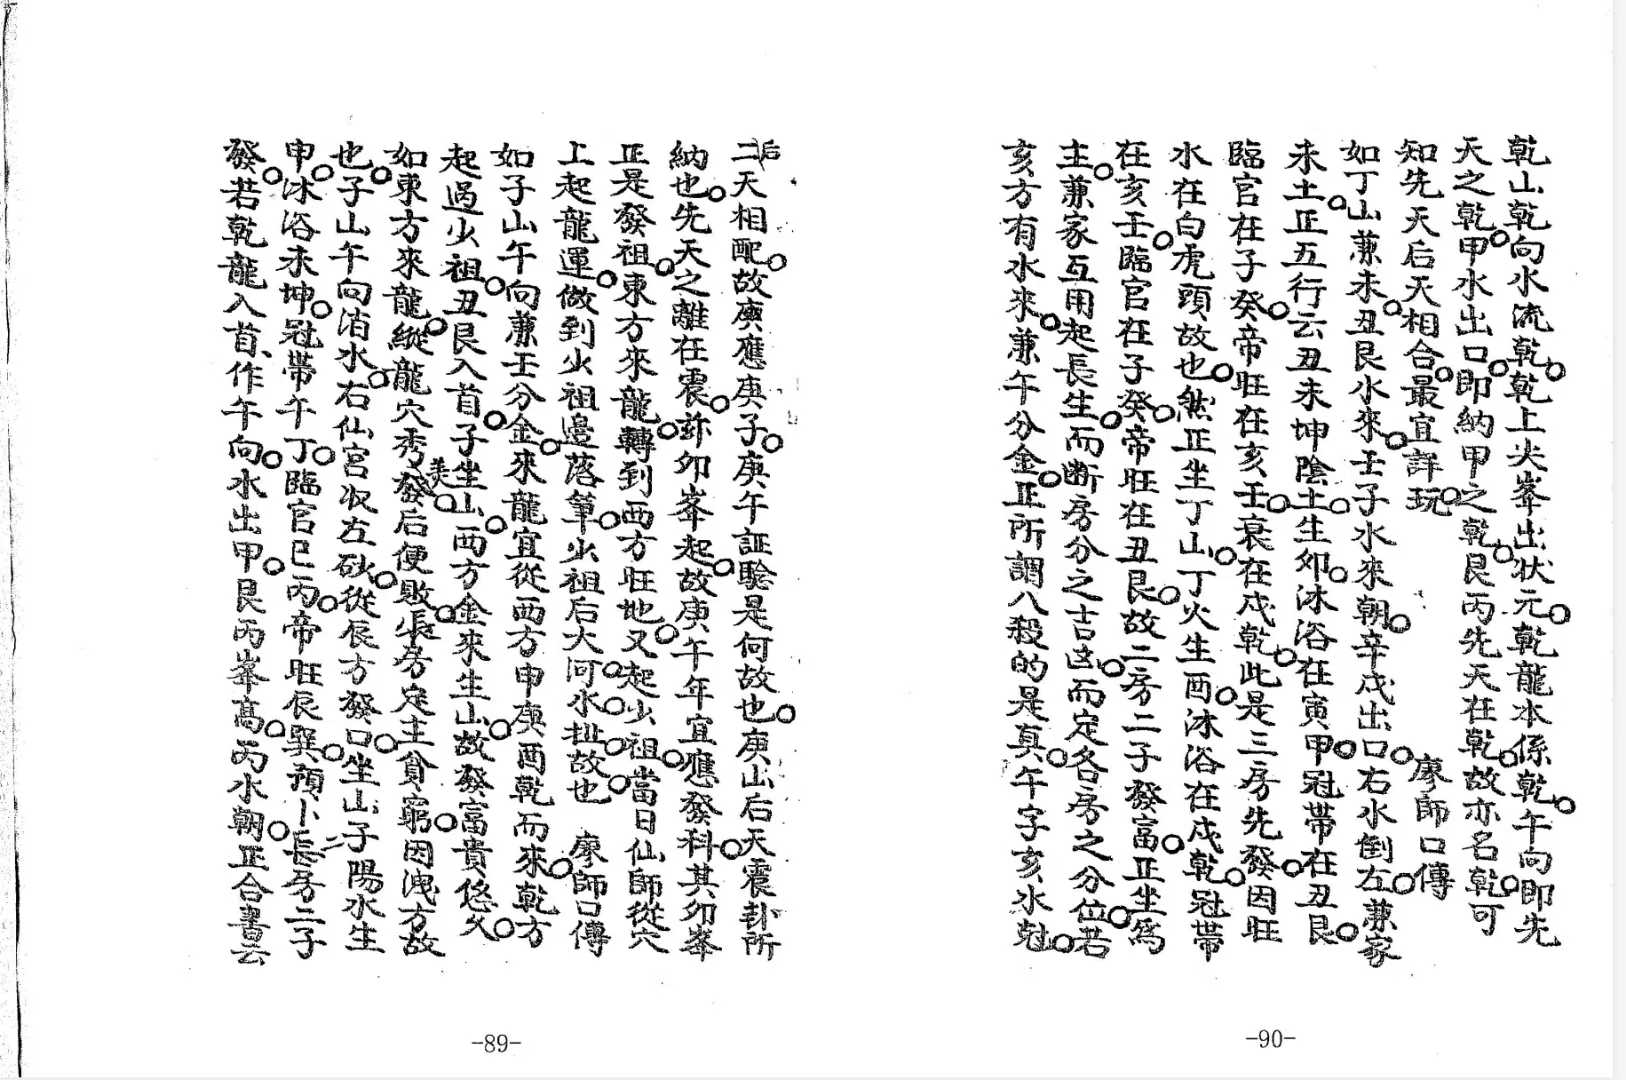 二后天相配。故庚應庚子。庚午証驗是何故也。庚山后天震卦所
納也。先天之離在震。卯峯起。故庚午年宜應。發科。其卯峯
正是發祖。東方來龍。轉到西方旺地。又起少祖。當日仙師從穴
上起龍運。做到少祖邊落筆。少祖后大河水扯故也。廖師口傳
如子山午向兼壬分金。來龍宜從西方申庚酉乾而來。乾方
起過少祖。丑艮入首。子坐山。西方金來生山。故發富貴悠久。
如東方來龍。縱龍穴秀美。發后便敗。長房定主貧窮。因洩方故
也。子山午向消水。右仙宮收左砂。從辰方發口。坐山子陽水生
申。沐浴未坤。冠帶午丁。臨官巳丙。帝旺辰巽。預卜長房二子
發。若乾龍入首、作午向。水出甲。艮丙峯高。丙水朝。正合書云
-89-
乾山乾向水流乾。乾上尖峯出状元。乾龍本係乾。午向即先
天之乾。甲水出口。即納甲之乾。艮丙先天在乾。故亦名乾。可
知先天后天相合。最宜詳玩。廖師口傳
如丁山兼未。丑艮水來。壬子水來朝。辛戌出口。右水倒左。兼家
未土。正五行云丑未坤陰土。生卯。沐浴在寅甲。冠帶在丑艮。
臨官在子癸。帝旺在亥壬。衰在戌乾。此是三房先發。因旺
水在白虎頭故也。然正坐丁山。丁火生酉。沐浴在戌乾。冠帶
在亥壬。臨官在子癸。帝旺在丑艮。故二房二子發富。正坐為
主。兼家互用起長生。而断房分之吉凶。而定各房之分位。若
亥方有水來。兼午分金。正所謂八殺的是真。午字亥水尅。
-90-